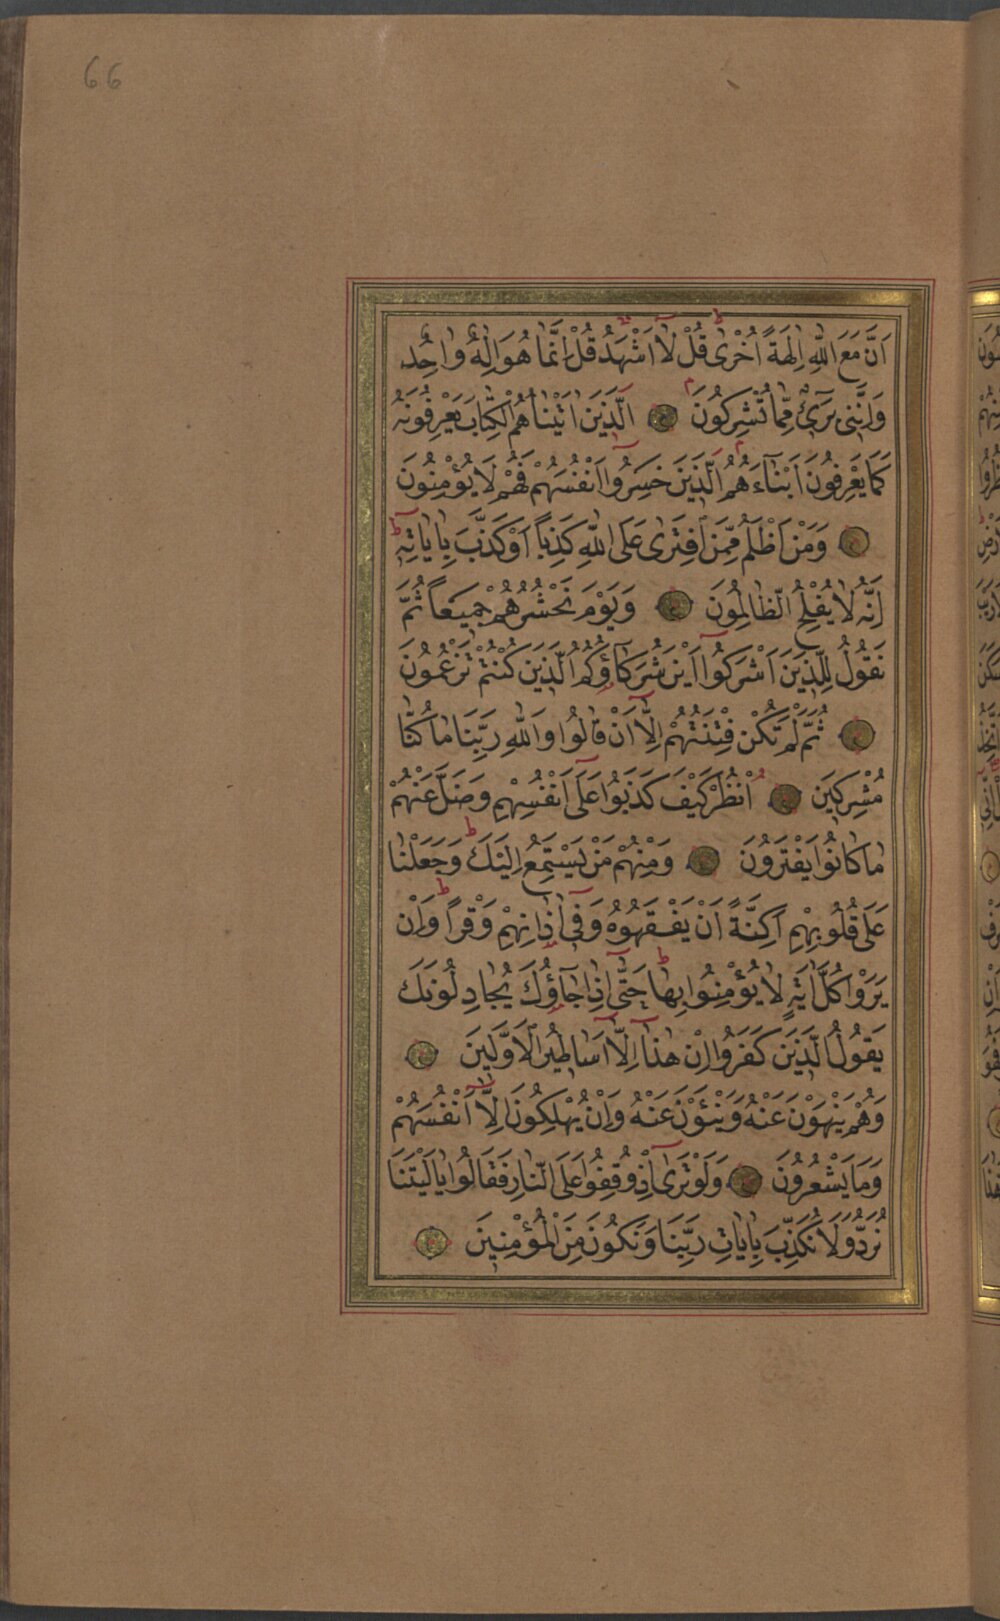 66
اَنَّ مَعَ اللّٰهِ اٰلِهَةً اُخْرٰى قُلْ لَٓا اَشْهَدُ قُلْ اِنَّمَا هُوَ اِلٰهٌ وَاحِدٌ
وَاِنَّنِى بَرِٓىءٌ مِمَّا تُشْرِكُونَ اَلَّذِينَ اٰتَيْنَاهُمُ الْكِتَابَ يَعْرِفُونَهُ
كَمَا يَعْرِفُونَ اَبْنَٓاءَهُمُ الَّذِينَ خَسِرُٓوا اَنْفُسَهُمْ فَهُمْ لَا يُؤْمِنُونَ
وَمَنْ اَظْلَمُ مِمَّنِ افْتَرٰى عَلَى اللّٰهِ كَذِبًا اَوْ كَذَّبَ بِاٰيَاتِهِ
اِنَّهُ لَا يُفْلِحُ الظَّالِمُونَ وَيَوْمَ نَحْشُرُهُمْ جَمِيعًا ثُمَّ
نَقُولُ لِلَّذِينَ اَشْرَكُٓوا اَيْنَ شُرَكَٓاؤُكُمُ الَّذِينَ كُنْتُمْ تَزْعُمُونَ
ثُمَّ لَمْ تَكُنْ فِتْنَتُهُمْ اِلَّٓا اَنْ قَالُوا وَاللّٰهِ رَبِّنَا مَا كُنَّا
مُشْرِكِينَ اُنْظُرْ كَيْفَ كَذَبُوا عَلٰٓى اَنْفُسِهِمْ وَضَلَّ عَنْهُمْ
مَا كَانُوا يَفْتَرُونَ وَمِنْهُمْ مَنْ يَسْتَمِعُ اِلَيْكَ وَجَعَلْنَا
عَلٰى قُلُوبِهِمْ اَكِنَّةً اَنْ يَفْقَهُوهُ وَفِٓى اٰذَانِهِمْ وَقْرًا وَاِنْ
يَرَوْا كُلَّ اٰيَةٍ لَا يُؤْمِنُوا بِهَا حَتّٰٓى اِذَا جَٓاؤُكَ يُجَادِلُونَكَ
يَقُولُ الَّذِينَ كَفَرُٓوا اِنْ هٰذَٓا اِلَّٓا اَسَاطِيرُ الْاَوَّلِينَ
وَهُمْ يَنْهَوْنَ عَنْهُ وَيَنْئَوْنَ عَنْهُ وَاِنْ يُهْلِكُونَ اِلَّٓا اَنْفُسَهُمْ
وَمَا يَشْعُرُونَ وَلَوْ تَرٰٓى اِذْ وُقِفُوا عَلَى النَّارِ فَقَالُوا يَا لَيْتَنَا
نُرَدُّ وَلَا نُكَذِّبَ بِاٰيَاتِ رَبِّنَا وَنَكُونَ مِنَ الْمُؤْمِنِينَ